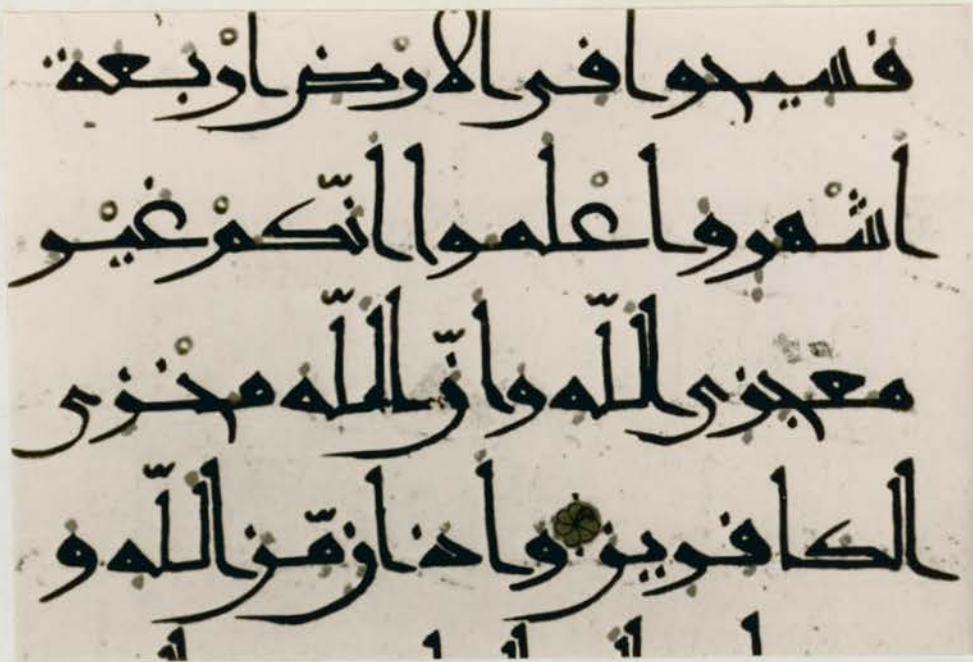 فسيحوا في الارض اربعة
اشهر واعلموا انّكم غير
معجزي اللّه وانّ اللّه مخزي
الكافرين واذان مّن اللّه و